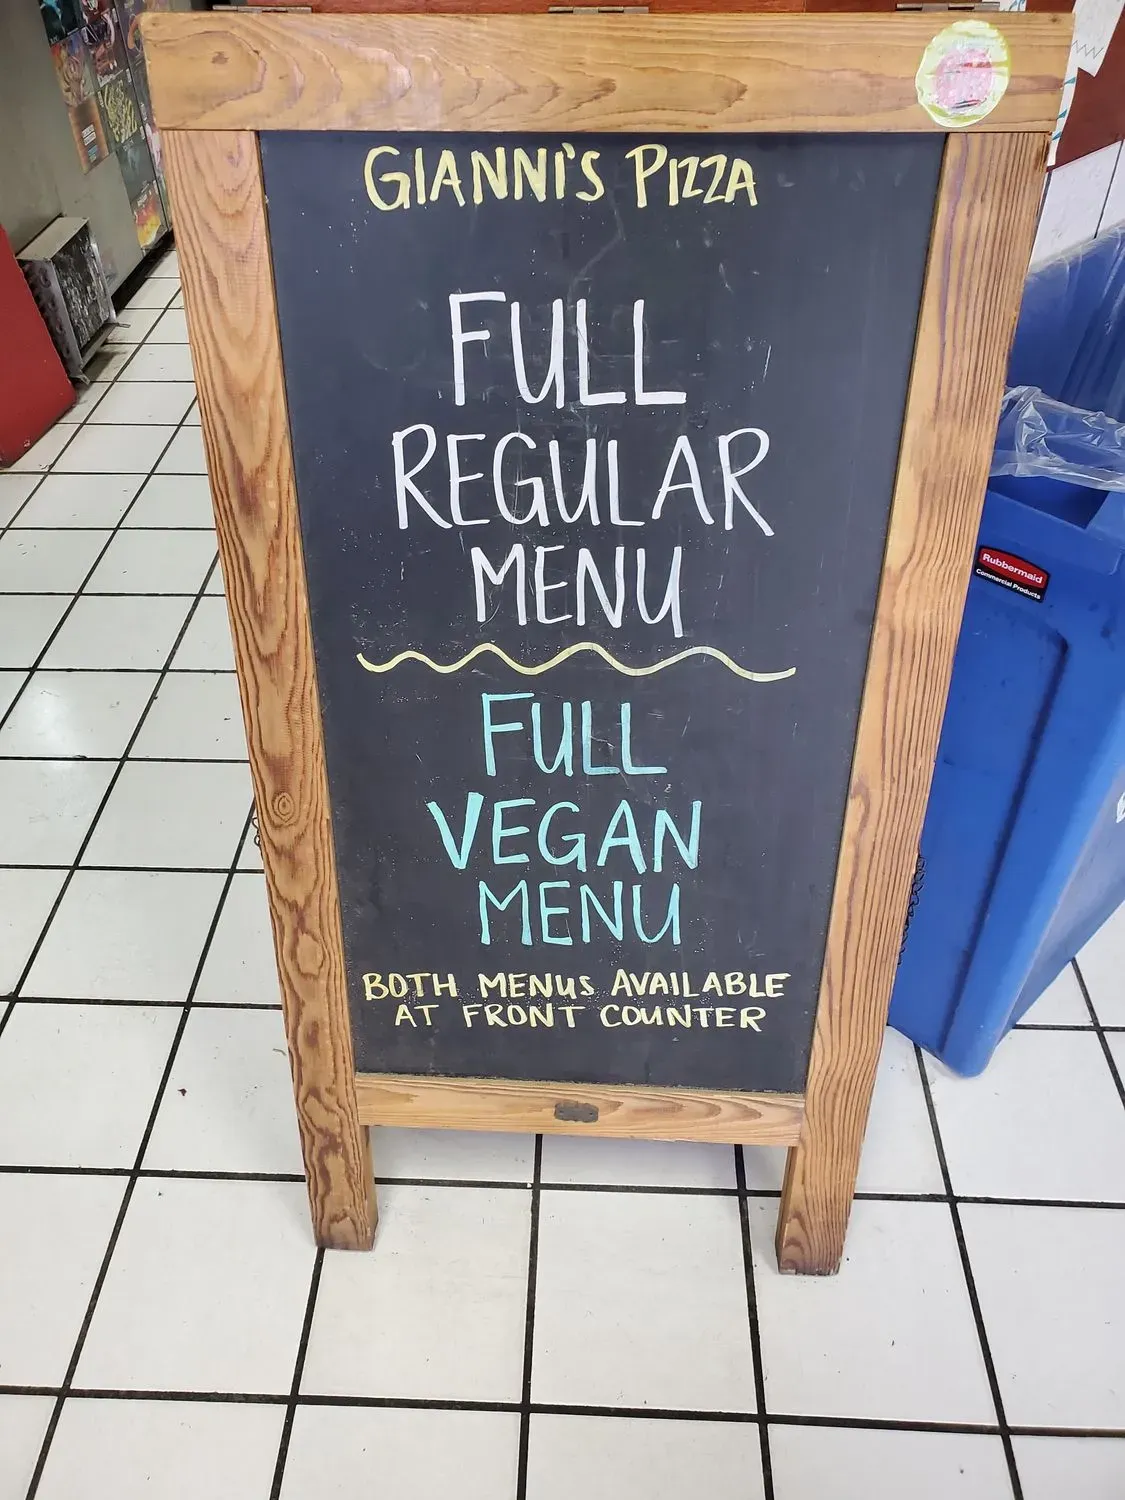 GIANNI'S PIZZA
FULL
REGULAR
MENU
FULL
VEGAN
MENU
BOTH MENUS AVAILABLE
AT FRONT COUNTER
Rubbermaid
Commercial Products